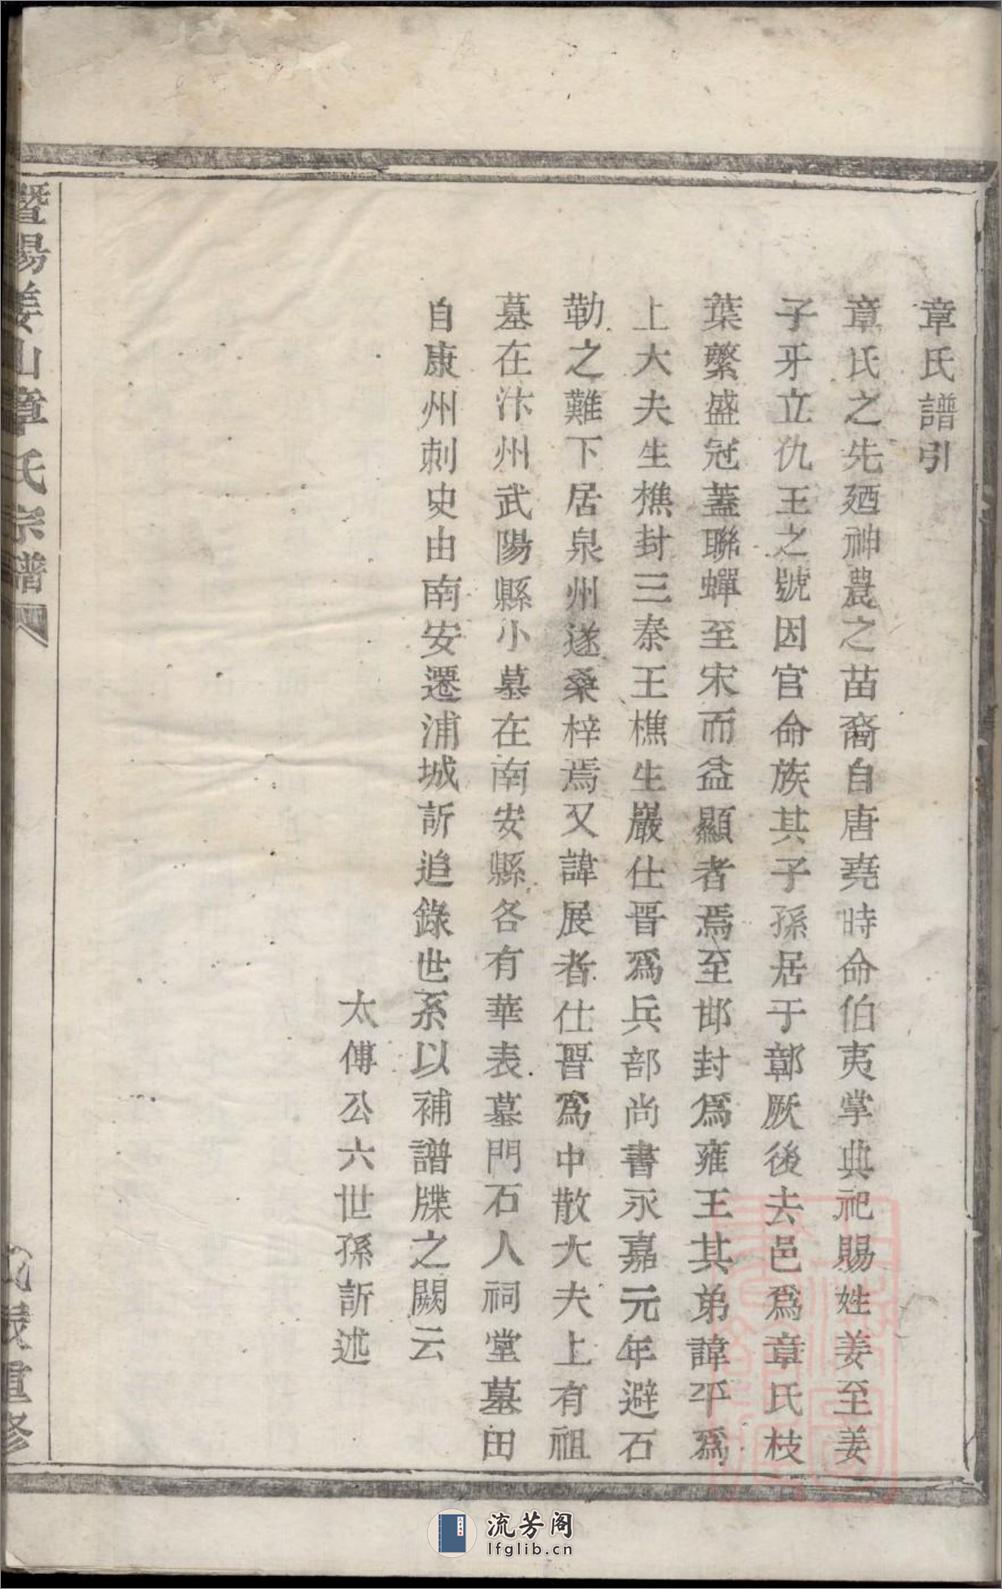 章氏譜引
章氏之先廼神農之苗裔自唐堯時命伯夷掌典祀賜姓姜至姜
子牙立仇王之號因官命族其子孫居于鄣厥後去邑爲章氏枝
葉蘩盛冠蓋聯蟬至宋而益顯者焉至邯封爲雍王其弟諱平爲
上大夫生樵封三秦王樵生巖仕晋爲兵部尚書永嘉元年避石
勒之難下居泉州遂桑梓焉又諱展者仕晋爲中散大夫上有祖
墓在汴州武陽縣小墓在南安縣各有華表墓門石人祠堂墓田
自康州刺史由南安遷浦城訢追錄世系以補譜牒之闕云
太傅公六世孫訢述
暨陽姜山章氏宗譜
重修
流芳阁
lfglib.cn